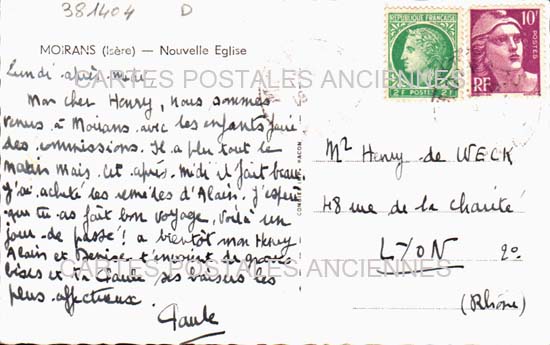 381404 D
MOIRANS (Isère) — Nouvelle Eglise
Lundi après-midi
Mon cher Henry, nous sommes
venus à Moirans avec les enfants faire
des commissions. Il a plu tout le
matin mais cet après-midi il fait beau
j'ai acheté les remèdes d'Alain. j'espère
que tu as fait bon voyage. Voilà un
jour de passé! a bientôt mon Henry
Alain et Denise t'envoient de gros
bises et ta Paule ses baisers les
plus affectueux.
Paule
REPUBLIQUE FRANÇAISE
2F POSTES 2F
10F
POSTES
RF
Mr Henry de WECK
48 rue de la Charité
LYON 2o
(Rhône)
CARTES POSTALES ANCIENNES
CARTES POSTALES ANCIENNES